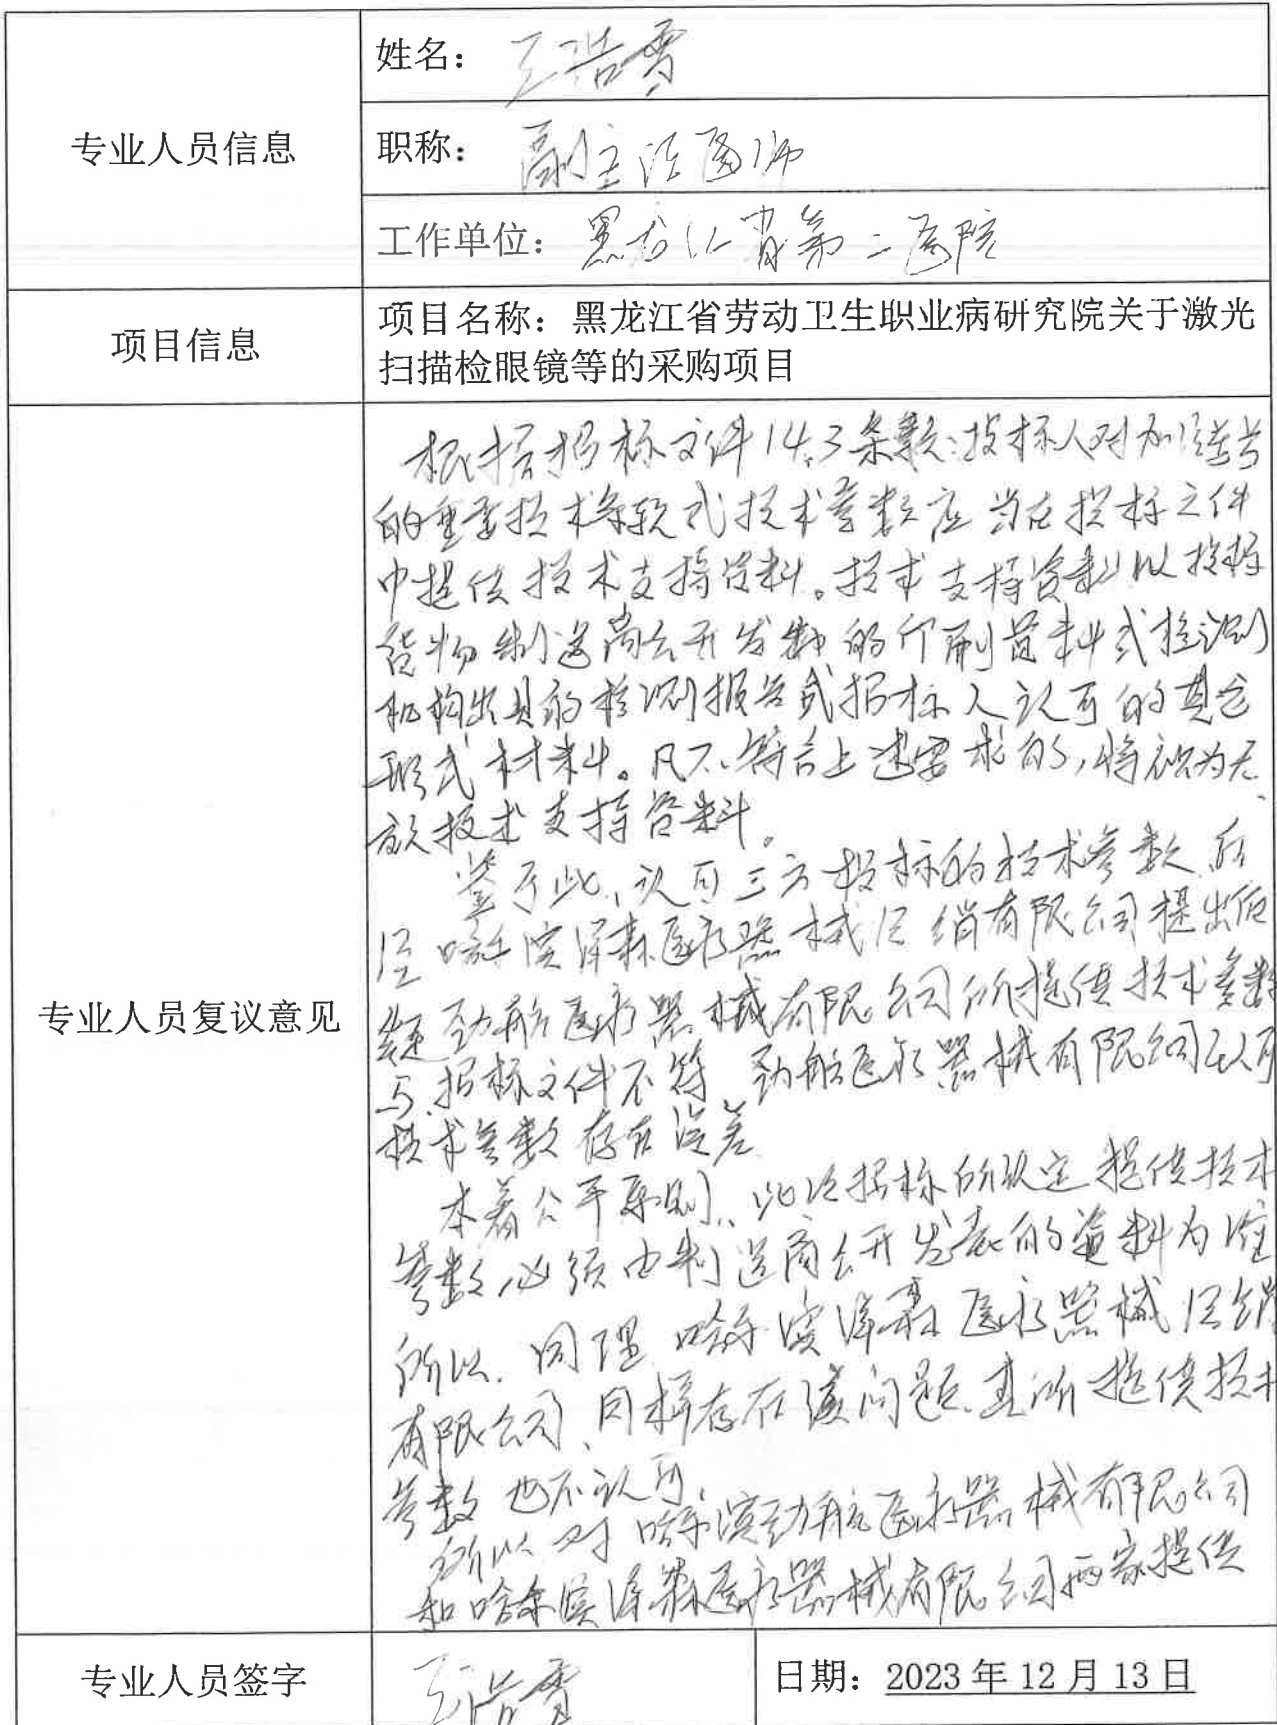 专业人员信息
姓名：王浩雪
职称：副主任医师
工作单位：黑龙江省第二医院
项目信息
项目名称：黑龙江省劳动卫生职业病研究院关于激光
扫描检眼镜等的采购项目
专业人员复议意见
根据招标文件14.3条款：投标人对加注星号
的重要技术条款或技术参数应当在投标文件
中提供技术支持资料。技术支持资料以投标
货物制造商公开发布的印刷资料或检测
机构出具的检测报告或招标人认可的其它
形式材料。凡不符合上述要求的，将视为无
效技术支持资料。
鉴于此，认可三方投标的技术参数，后
经哈尔滨泽森医疗器械经销有限公司提出质
疑劲航医疗器械有限公司所提供技术参数
与招标文件不符，劲航医疗器械有限公司认可
技术参数存在误差
本着公平原则，此次招标所认定提供技术
参数必须由制造商公开发表的资料为准
所以，同理哈尔滨泽森医疗器械经销
有限公司，同样存在该问题，其所提供技术
参数也不认可，
所以对哈尔滨劲航医疗器械有限公司
和哈尔滨泽森医疗器械有限公司两家提供
专业人员签字
王浩雪
日期：2023年12月13日